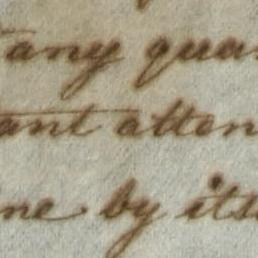 any qua
ant atten
ne by its